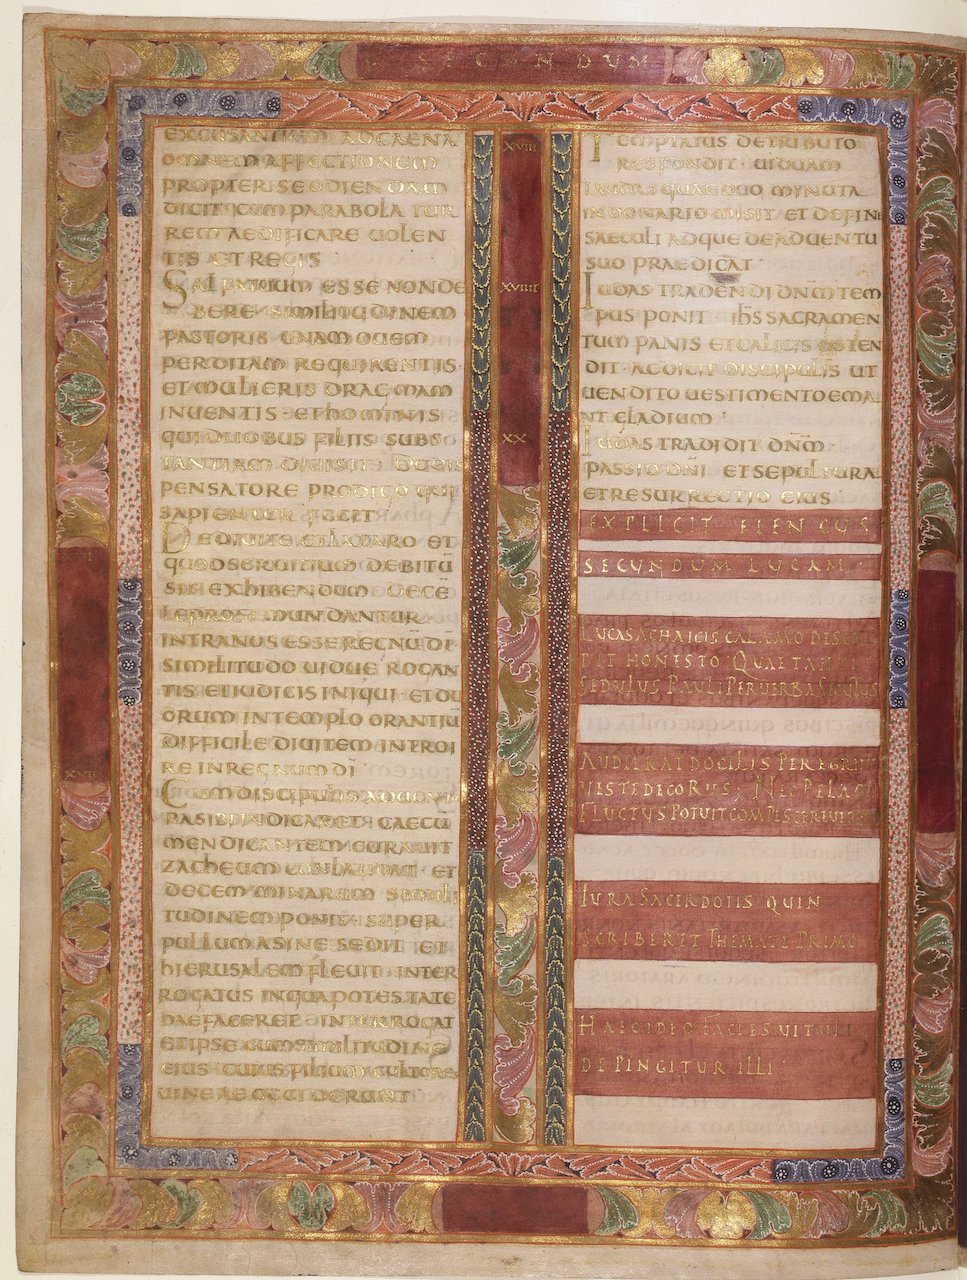 SECUNDUM
EXCUSANTIUM AD CAENA
OMNEM AFFECTIONEM
PROPTER SE ODIENDAM
DICIT CUM PARABOLA TUR
REM AEDIFICARE UOLEN
TIS ET REGIS
SAL PATRUUM ESSE NON DE
BERE SIMILITUDINEM
PASTORIS UNAM OUEM
PERDITAM REQUIRENTIS
ET MULIERIS DRAGMAM
INUENTIS ET HOMINIS
QUI DUOBUS FILIIS SUBS
TANTIAM DIUISIT DE DIS
PENSATORE PRODIGO QUI
SAPIENTER FECIT
XVII
DE DIUITE ET LAZARO ET
QUOD SERUITIUM DEBITŪ
SIT EXHIBENDUM DECĒ
LEPROSI MUNDANTUR
INTRA NOS ESSE REGNŪ DĪ
SIMILITUDO UIDUE ROGAN
TIS ET IUDICIS INIQUI ET DU
ORUM IN TEMPLO ORANTIŪ
DIFFICILE DIUITEM INTROI
RE IN REGNUM DĪ
CUM DISCIPULIS
PASIBI INDICARET CAECU
MENDICANTEM CURAUIT
ZACHEUM CONLAUDAT ET
DECEM MINARUM SIMILI
TUDINEM PONIT SUPER
PULLUM ASINE SEDIT ET
HIERUSALEM FLEUIT INTER
ROGATUS IN QUA POTESTATE
HAEC FACERET INTERROGAT
ET IPSE CUM SIMILITUDINE
EIUS CUIUS FILIUM CULTORES
UINEAE OCCIDERUNT
XVIII
TEMPTATUS DE TRIBUTO
RESPONDIT UIDUAM
LAUDAT QUAE DUO MINUTA
IN DONARIO MISIT ET DE FINE
SAECULI ADQUE DE ADUENTU
SUO PRAEDICAT
XVIIII
IUDAS TRADENDI DN̄M TEM
PUS PONIT IHS SACRAMEN
TUM PANIS ET CALICIS OSTEN
DIT AC DICIT DISCIPULIS UT
UENDITO UESTIMENTO EMA
NT GLADIUM
XX
IUDAS TRADIDIT DN̄M
PASSIO DN̄I ET SEPULTURA
ET RESURRECTIO EIUS
EXPLICIT ELENCUS
SECUNDUM LUCAM
LUCAS ACHAICIS CALAMO DESCRI
BIT HONESTO QUAE TANTI
SEDULUS PAULI PER UERBA
AUDIERAT DOCILIS PEREGRINA
VESTE DECORUS; NEC PELAGI
FLUCTUS POTUIT COMPESCERE
IURA SACERDOTIS QUIN
SCRIBERET THEMATE PRIMO
HAEC IDEO FACIES UITULI
DEPINGITUR ILLI